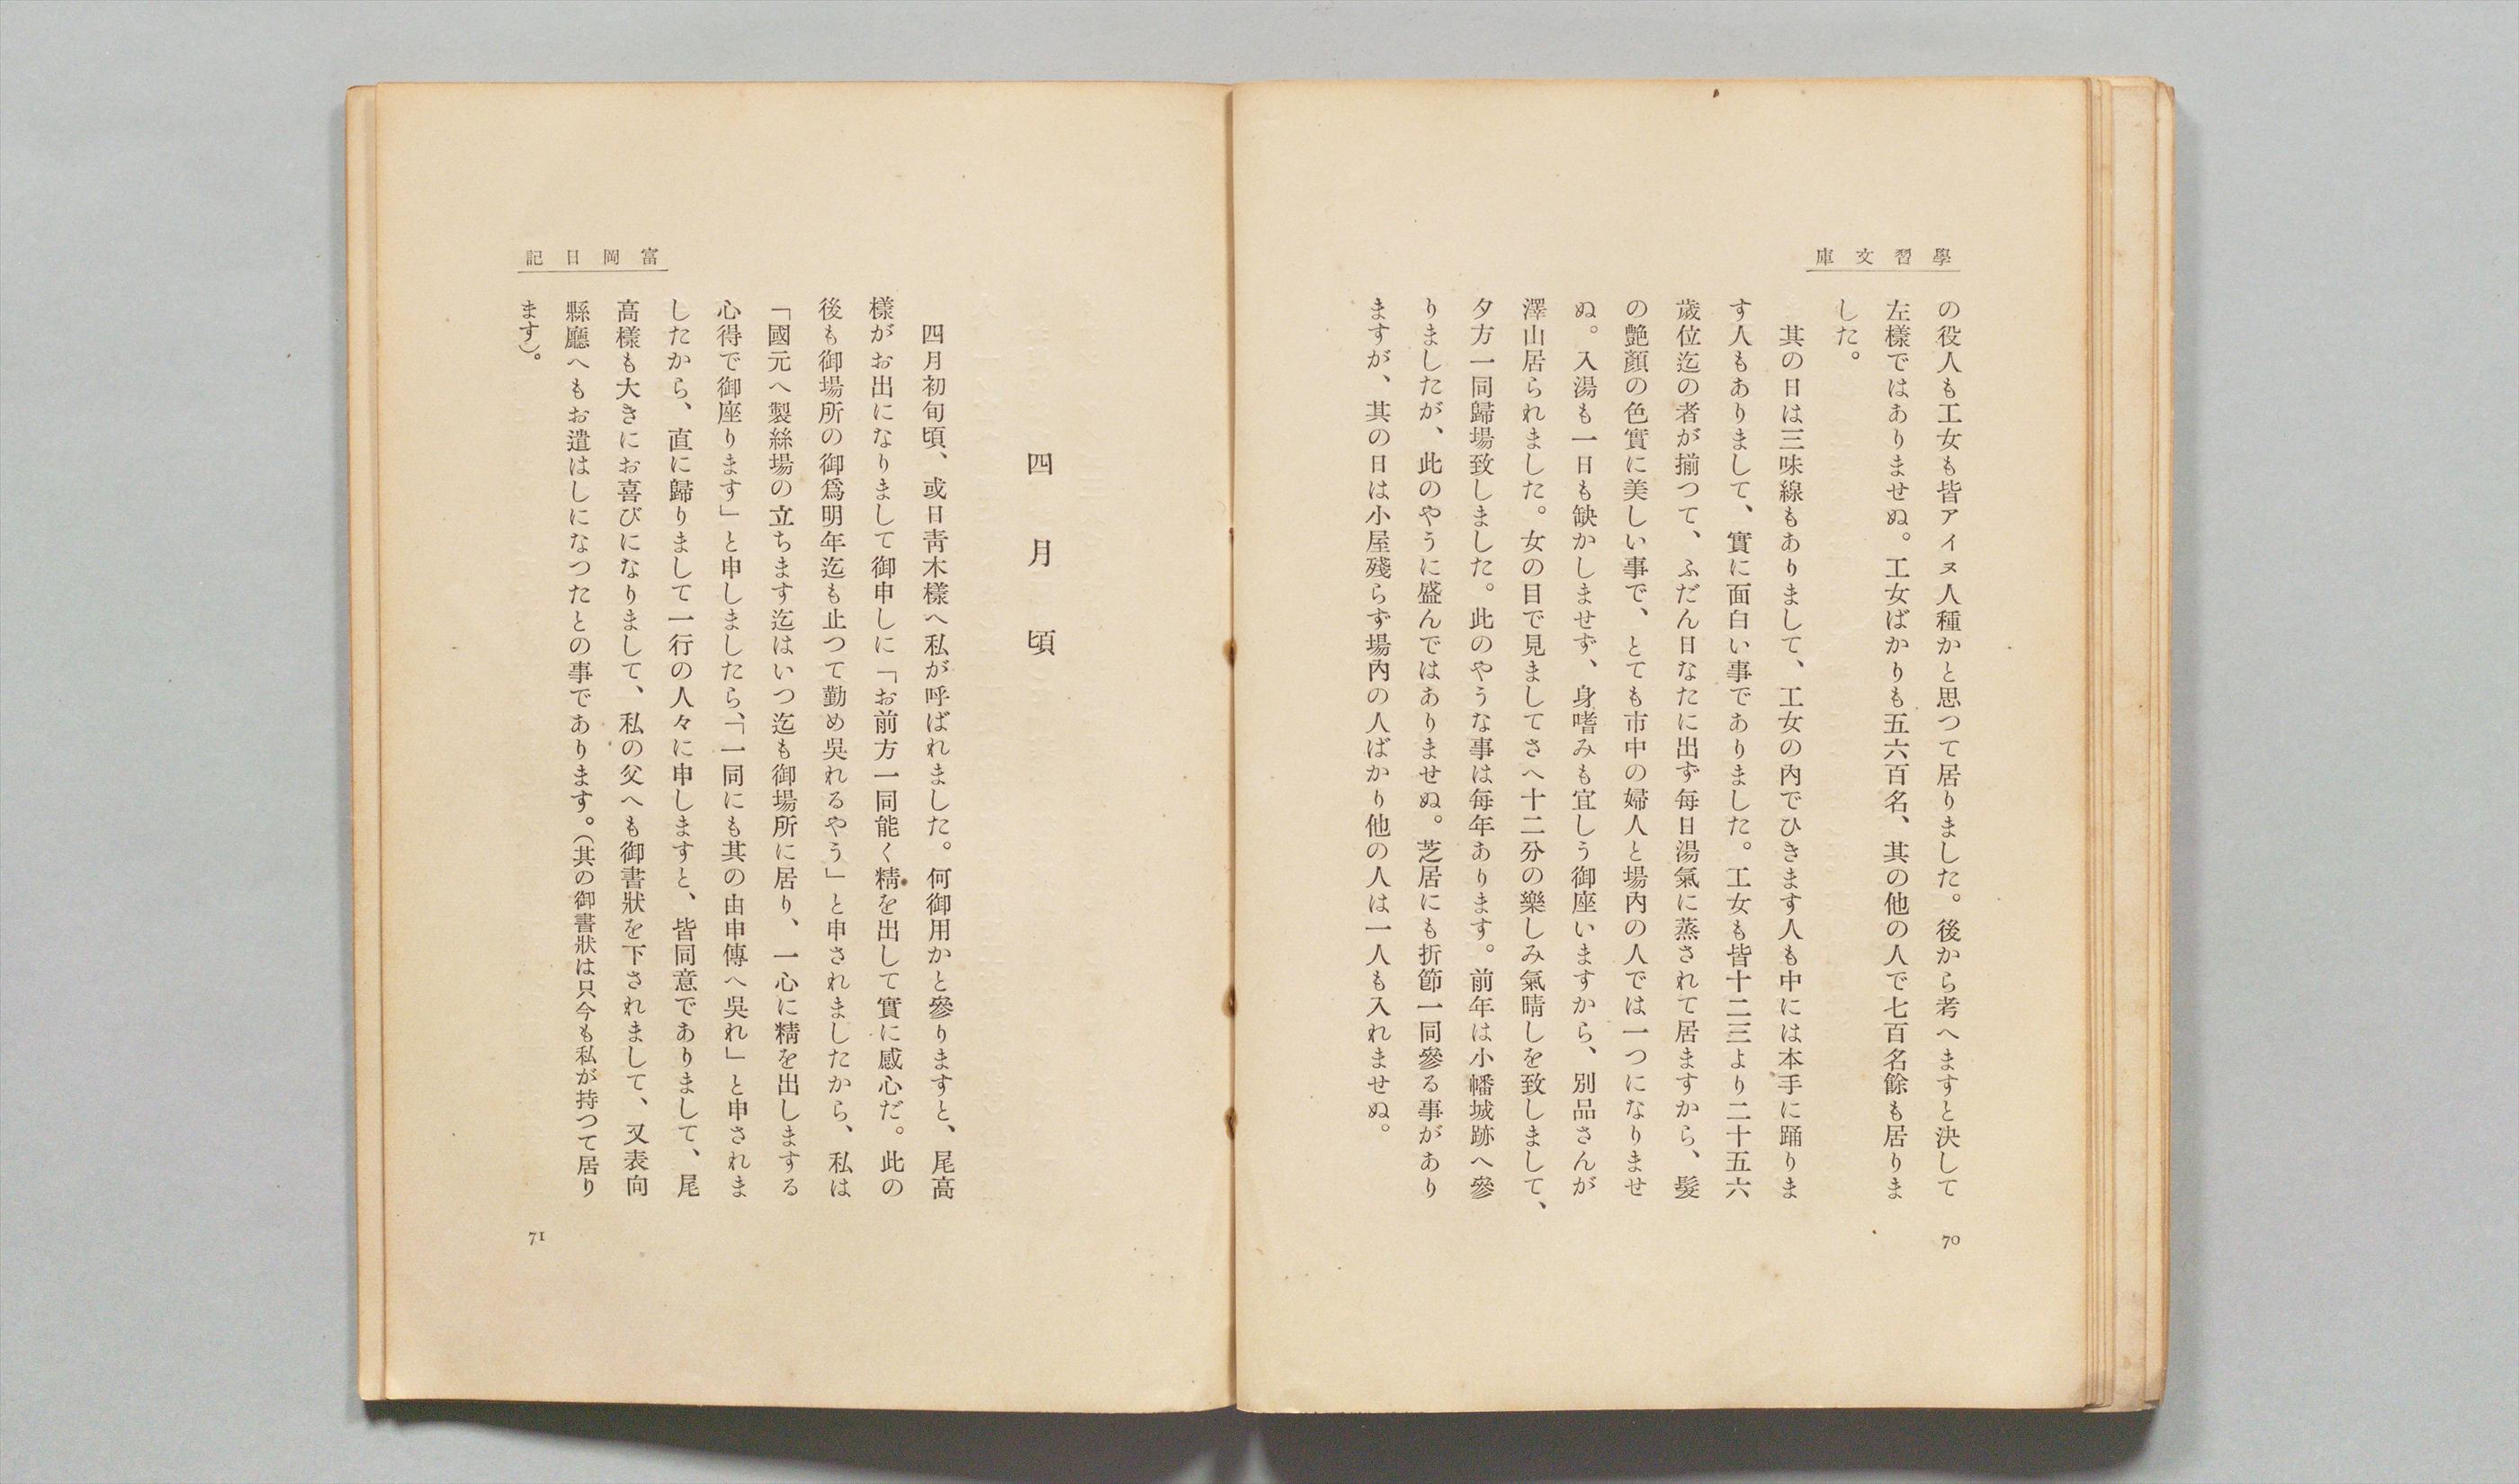 學習文庫
の役人も工女も皆アイヌ人種かと思つて居りました。後から考へますと決して
左樣ではありませぬ。工女ばかりも五六百名、其の他の人で七百名餘も居りま
した。
其の日は三味線もありまして、工女の內でひきます人も中には本手に踊りま
す人もありまして、實に面白い事でありました。工女も皆十二三より二十五六
歲位迄の者が揃つて、ふだん日なたに出ず每日湯氣に蒸されて居ますから、髮
の艶顏の色實に美しい事で、とても市中の婦人と場內の人では一つになりませ
ぬ。入湯も一日も缺かしませず、身嗜みも宜しう御座いますから、別品さんが
澤山居られました。女の目で見ましてさへ十二分の樂しみ氣晴しを致しまして、
夕方一同歸場致しました。此のやうな事は每年あります。前年は小幡城跡へ參
りましたが、此のやうに盛んではありませぬ。芝居にも折節一同參る事があり
ますが、其の日は小屋殘らず場內の人ばかり他の人は一人も入れませぬ。
70
富岡日記
四月頃
四月初旬頃、或日靑木樣へ私が呼ばれました。何御用かと參りますと、尾高
樣がお出になりまして御申しに「お前方一同能く精を出して實に感心だ。此の
後も御場所の御爲明年迄も止つて勤め吳れるやう」と申されましたから、私は
「國元へ製絲場の立ちます迄はいつ迄も御場所に居り、一心に精を出しまする
心得で御座ります」と申しましたら、「一同にも其の由申傳へ吳れ」と申されま
したから、直に歸りまして一行の人々に申しますと、皆同意でありまして、尾
高樣も大きにお喜びになりまして、私の父へも御書狀を下されまして、又表向
縣廳へもお遣はしになつたとの事であります。（其の御書狀は只今も私が持つて居り
ます）。
71